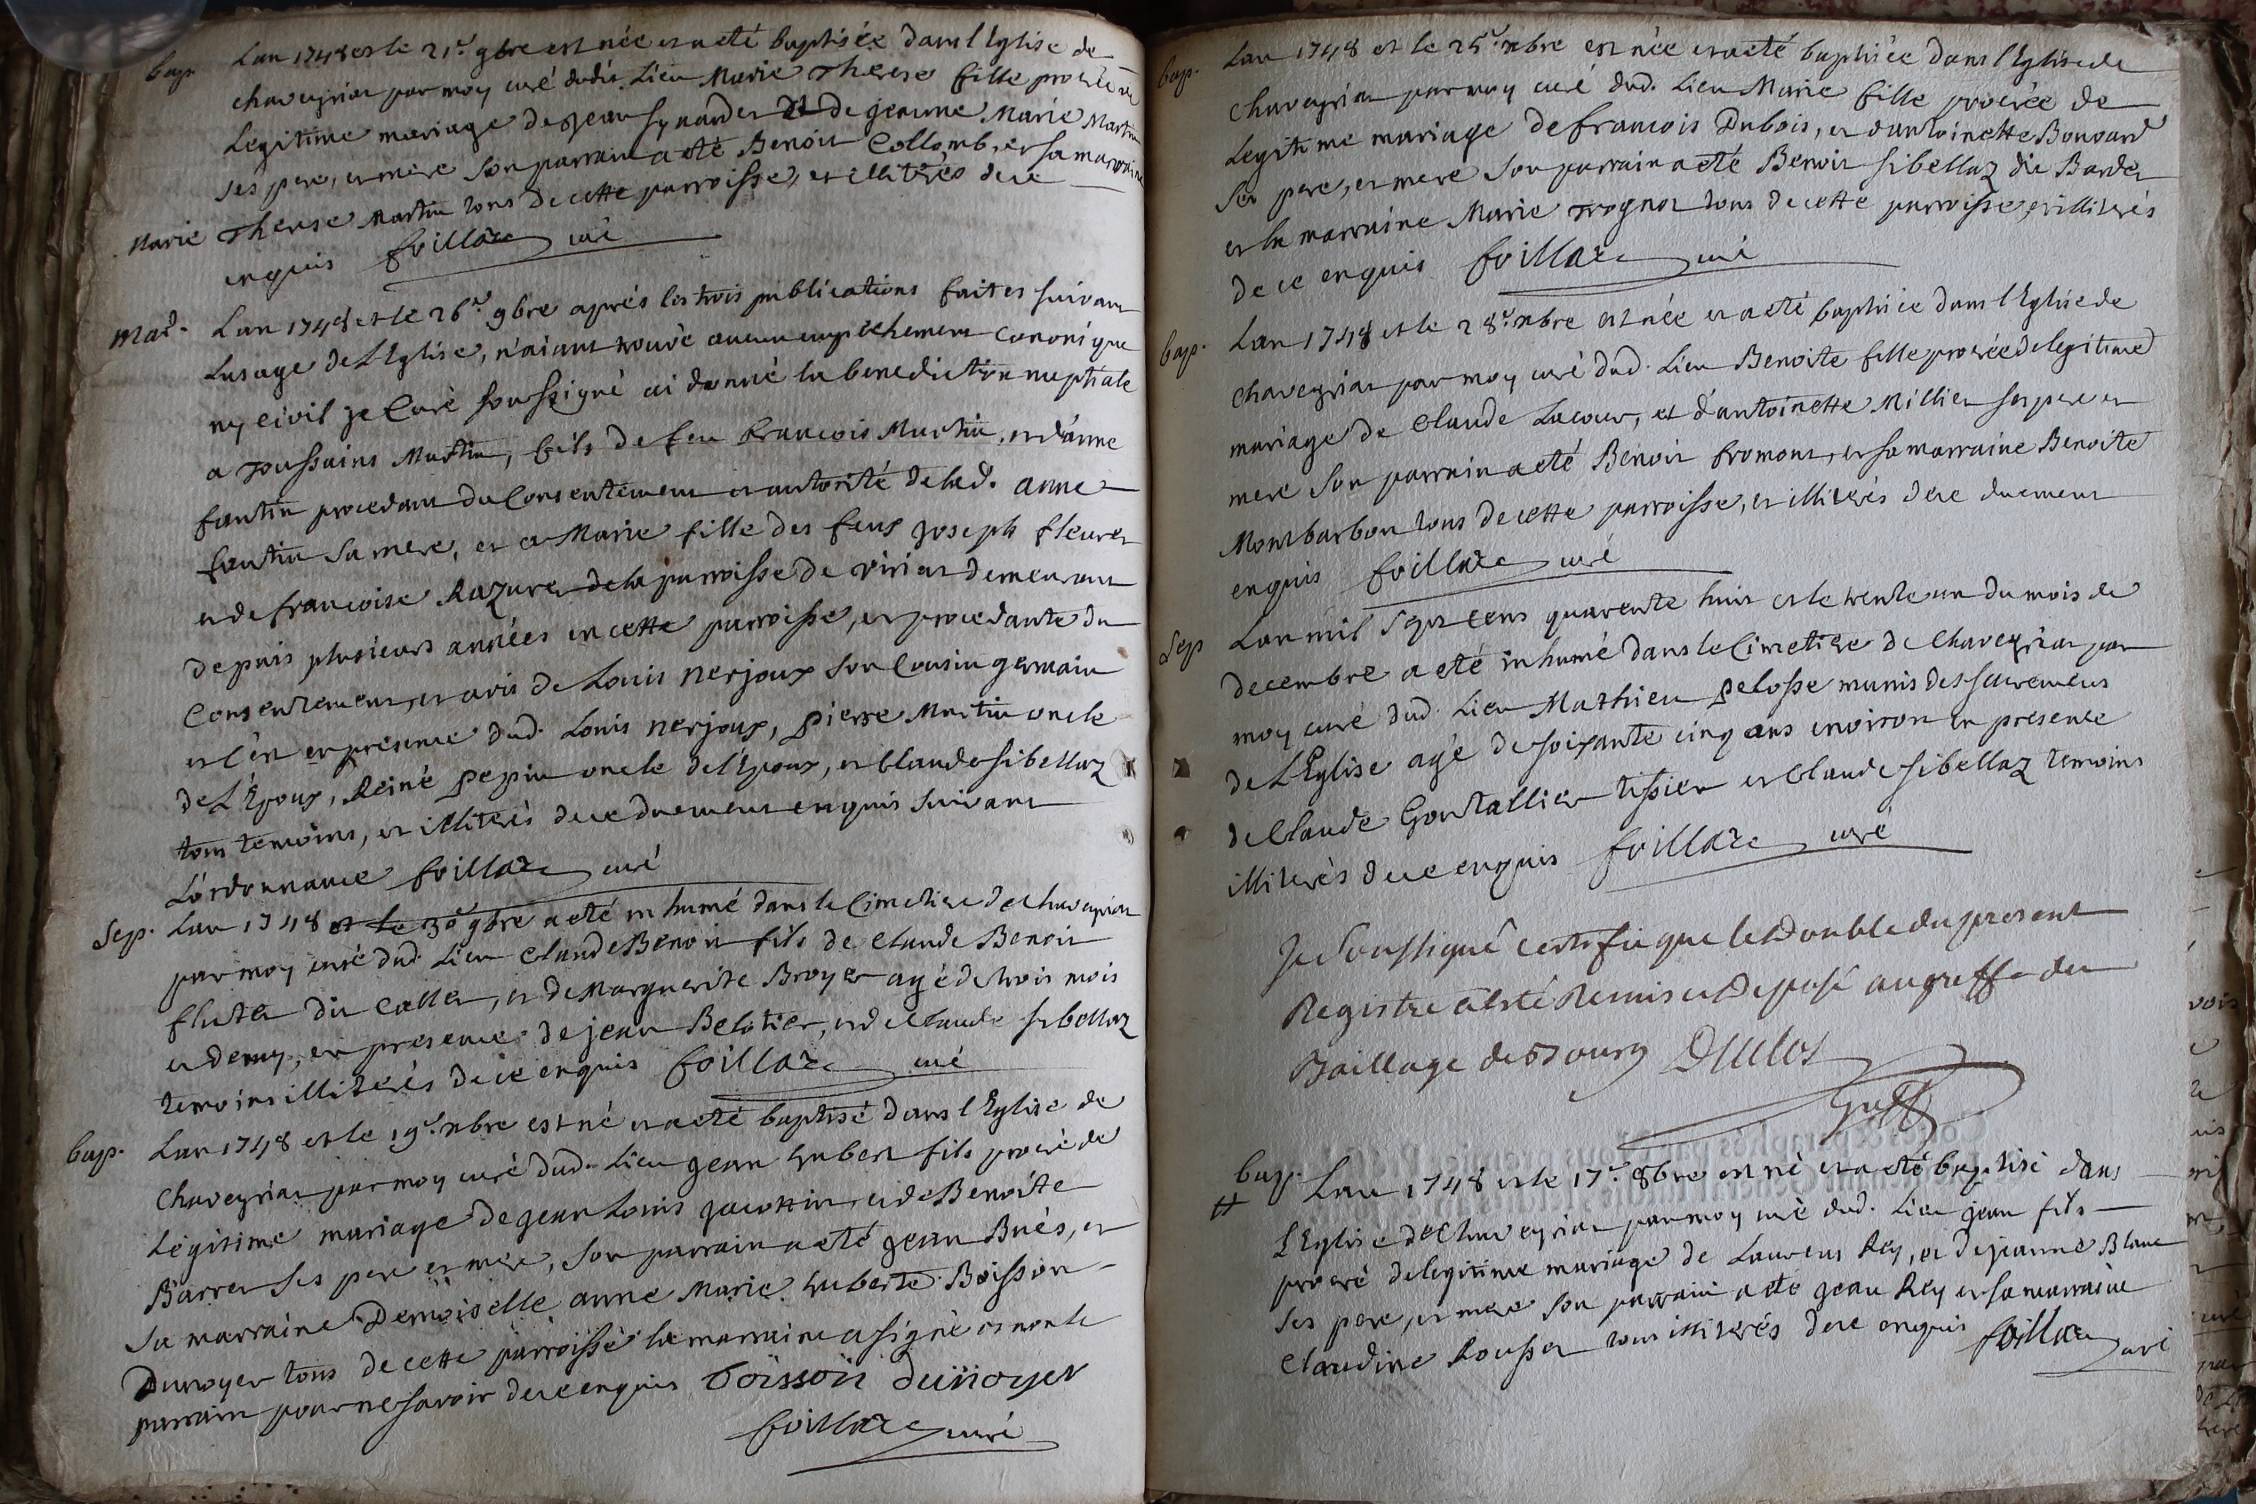 bap. Lan 1748 et le 21.e 9bre est née et a eté baptisée dans l'Eglise de
chaveyriat par moy curé dudit Lieu Marie Therese fille procréée de
Legitime mariage de jean synardet et de jeanne Marie Martin
ses pere, et mere son parrain a eté Benoit Collomb, et sa marraine
Marie Therese Martin tous de cette parroisse, et illiterés de ce
enquis foillaz curé
Mad. Lan 1748 et le 26.e 9bre aprés les trois publications faites suivant
Lusage de L'Eglise, n'aiant trouvé aucun empechement canonique
ny civil je Curé soussigné ai donné la benediction nuptiale
a Toussains Martin, fils de feu francois Martin, et d'anne
fantin procedant du Consentement et autorité de lad. anne
fantin sa mere, et a Marie fille des feus joseph fleuret
et de francoise Razuret de la parroisse de viriat demeurant
depuis plusieurs années en cette parroisse, et procedante du
Consentement, et avis de Louis Nerjoux son Cousin germain
et c'en en presence dud. Louis nerjoux, pierre Martin oncle
de L'Epoux, Reiné pepin oncle de l'Epoux, et Claude sibellaz
tous temoins, et illiterés de ce duement enquis suivant
L'ordonnance foillaz curé
Sep. Lan 1748 et le 30.e 9bre a eté inhumé dans le Cimetiere de chaveyriat
par moy curé dud. Lieu Claude Benoit fils de Claude Benoit
flutet dit Callet, et de Marguerite Broyer agé de trois mois
et demy, en presence de jean Belotier, et de Claude sibellaz
temoins illiterés de ce enquis foillaz curé
bap. Lan 1748 et le 19.e xbre est né et a eté baptisé dans l'Eglise de
Chaveyriat par moy curé dud. Lieu jean hubert fils procréé de
Legitime mariage de jean Louis jacottin, et de Benoite
Barret ses pere et mere, son parrain a eté jean Bués, et
sa marraine Demoiselle anne Marie huberte Boisson
Dunoyer tous de cette parroisse la marraine a signé et non le
parrain pour ne savoir de ce enquis Boisson dunoyer
foillaz curé
bap. Lan 1748 et le 25.e xbre est née et a eté baptisée dans l'Eglise de
Chaveyriat par moy curé dud. Lieu Marie fille procréée de
Legitime mariage de francois Dubois, et d'antoinette Bouvard
ses pere, et mere son parrain a eté Benoit sibellaz dit Bardet
et la marraine Marie Trognot tous de cette parroisse, et illiterés
de ce enquis foillaz curé
bap. Lan 1748 et le 28.e xbre est née et a eté baptisée dans l'Eglise de
Chaveyriat par moy curé dud. Lieu Benoite fille procréée de legitime
mariage de Claude Lacour, et d'antoinette Millier ses pere et
mere son parrain a eté Benoit fromont, et sa marraine Benoite
Montbarbon tous de cette parroisse, et illiterés de ce duement
enquis foillaz curé
Sep Lan mil sept cens quarente huit et le trente un du mois de
decembre a eté inhumé dans le Cimetiere de Chaveyriat par
moy curé dud. Lieu Mathieu pelosse munis des sacremens
de L'Eglise agé de soixante cinq ans environ en presence
de Claude Gontallier tissier et Claude sibellaz temoins
illiterés de ce enquis foillaz curé
Je Soussigné certifie que le Double du present
Registre a été Remis et Deposé au greffe du
Baillage de Bourg Duclos
Greff
bap. Lan 1748 et le 17.e 8bre est né et a eté baptisé dans
L'Eglise de Chaveyriat par moy curé dud. Lieu jean fils
procréé de legitime mariage de Laurens Rey, et de jeanne Blanc
ses pere, et mere son parrain a eté jean Rey et sa marraine
Claudine Rousset tous illiterés de ce enquis foillaz curé